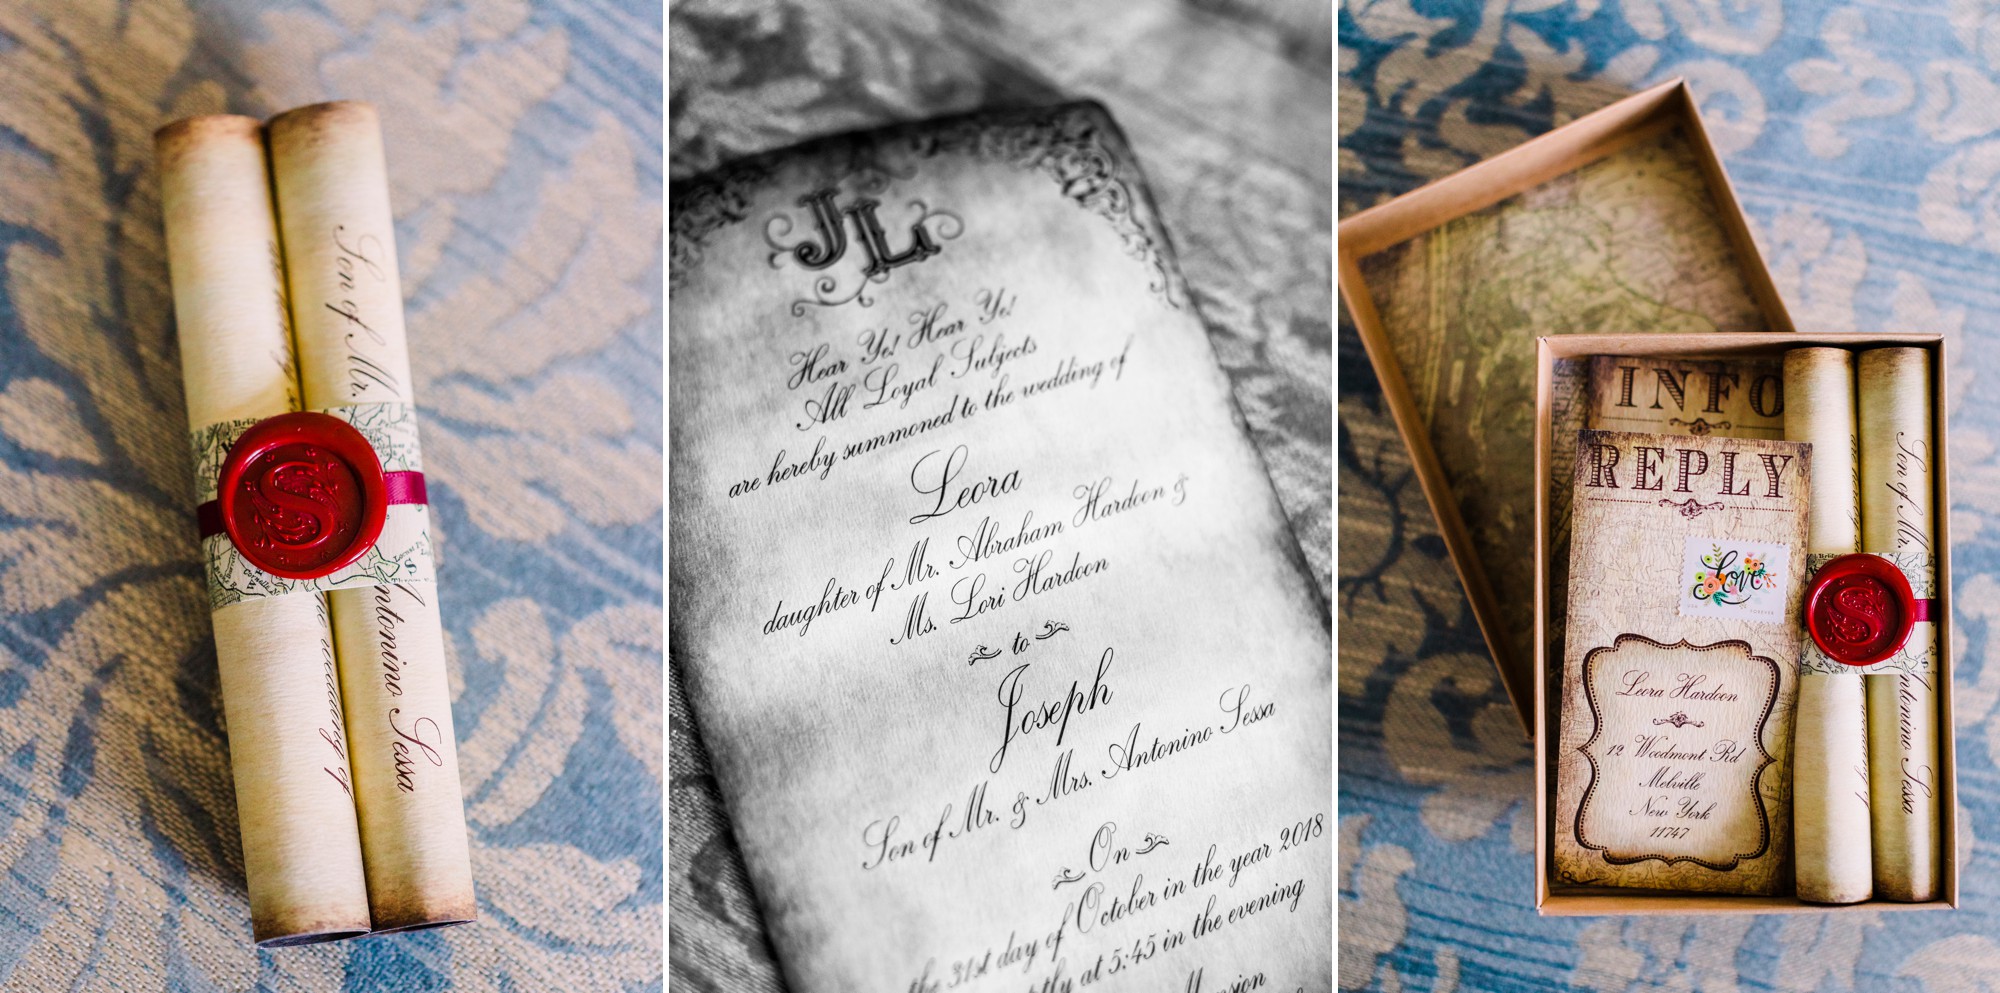 Son of Mr.
S
Antonino Sessa
the wedding of
JL
Hear Ye! Hear Ye!
All Loyal Subjects
are hereby summoned to the wedding of
Leora
daughter of Mr. Abraham Hardoon &
Ms. Lori Hardoon
to
Joseph
Son of Mr. & Mrs. Antonino Sessa
On
the 31st day of October in the year 2018
at 5:45 in the evening
INFO
REPLY
Love
FOREVER
Leora Hardoon
12 Woodmont Rd
Melville
New York
11747
Son of Mr.
S
Antonino Sessa
wedding of